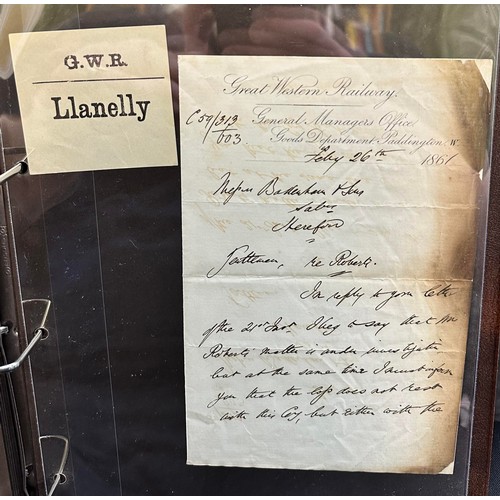 G.W.R.
Llanelly
Great Western Railway,
General Managers Office
Goods Department Paddington, W.
C 59/313
003.
Feby 26th 1861
Messrs Bodenham & Sons
Hereford
Gentlemen, re Roberts.
In reply to your letter
of the 21st Inst I beg to say that Mr
Roberts' matter is under investigation
but at the same time I must inform
you that the loss does not rest
with this Coy, but either with the